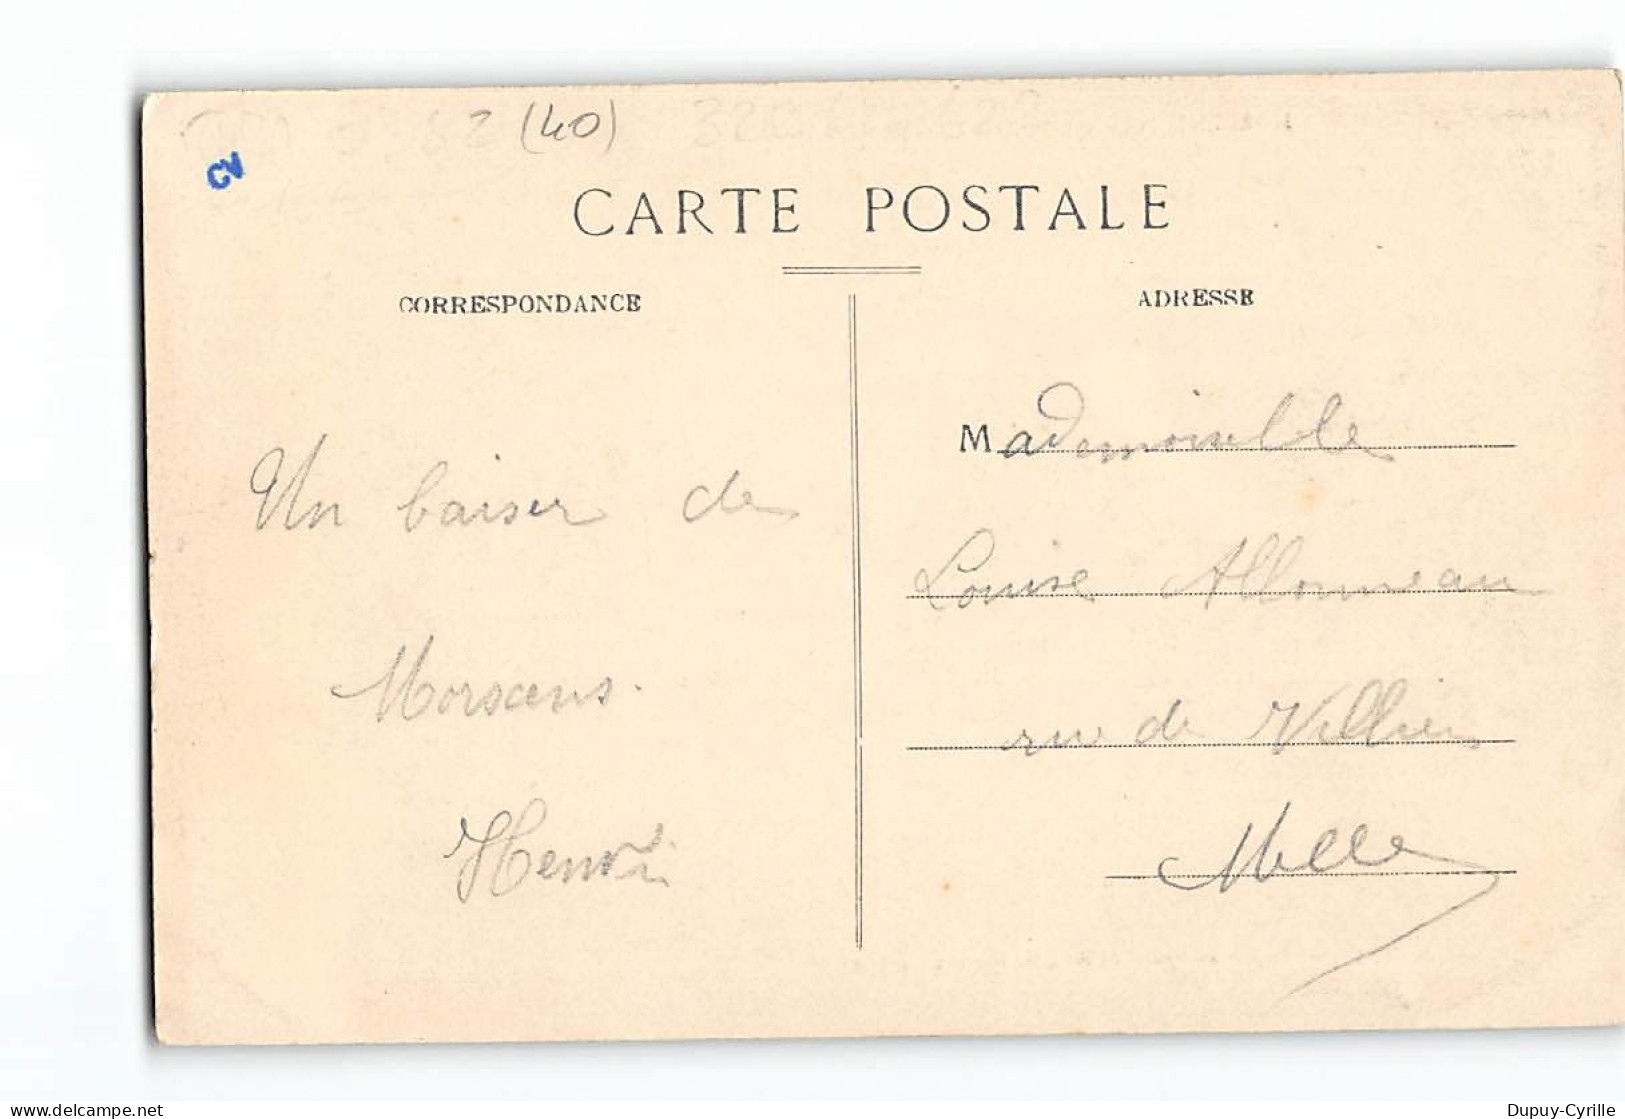 (40)
CV
CARTE POSTALE
CORRESPONDANCE
ADRESSE
Un baiser de
Henri
Mademoiselle
Louise Allonneau
rue de Villiers
Melle
delcampe.net
Dupuy-Cyrille